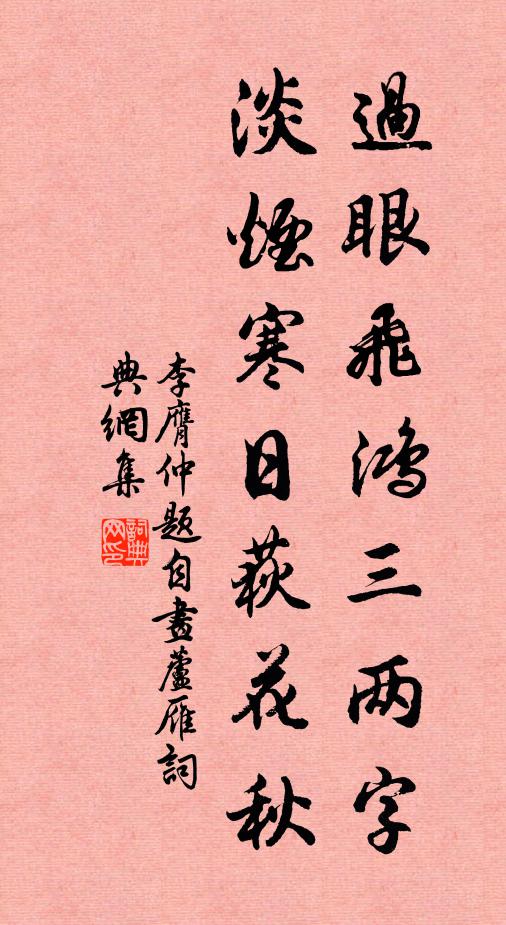 過眼飛鴻三两字
淡煙寒日荻花秋
李膺仲題自畫蘆雁詞
典網集
詞典网印